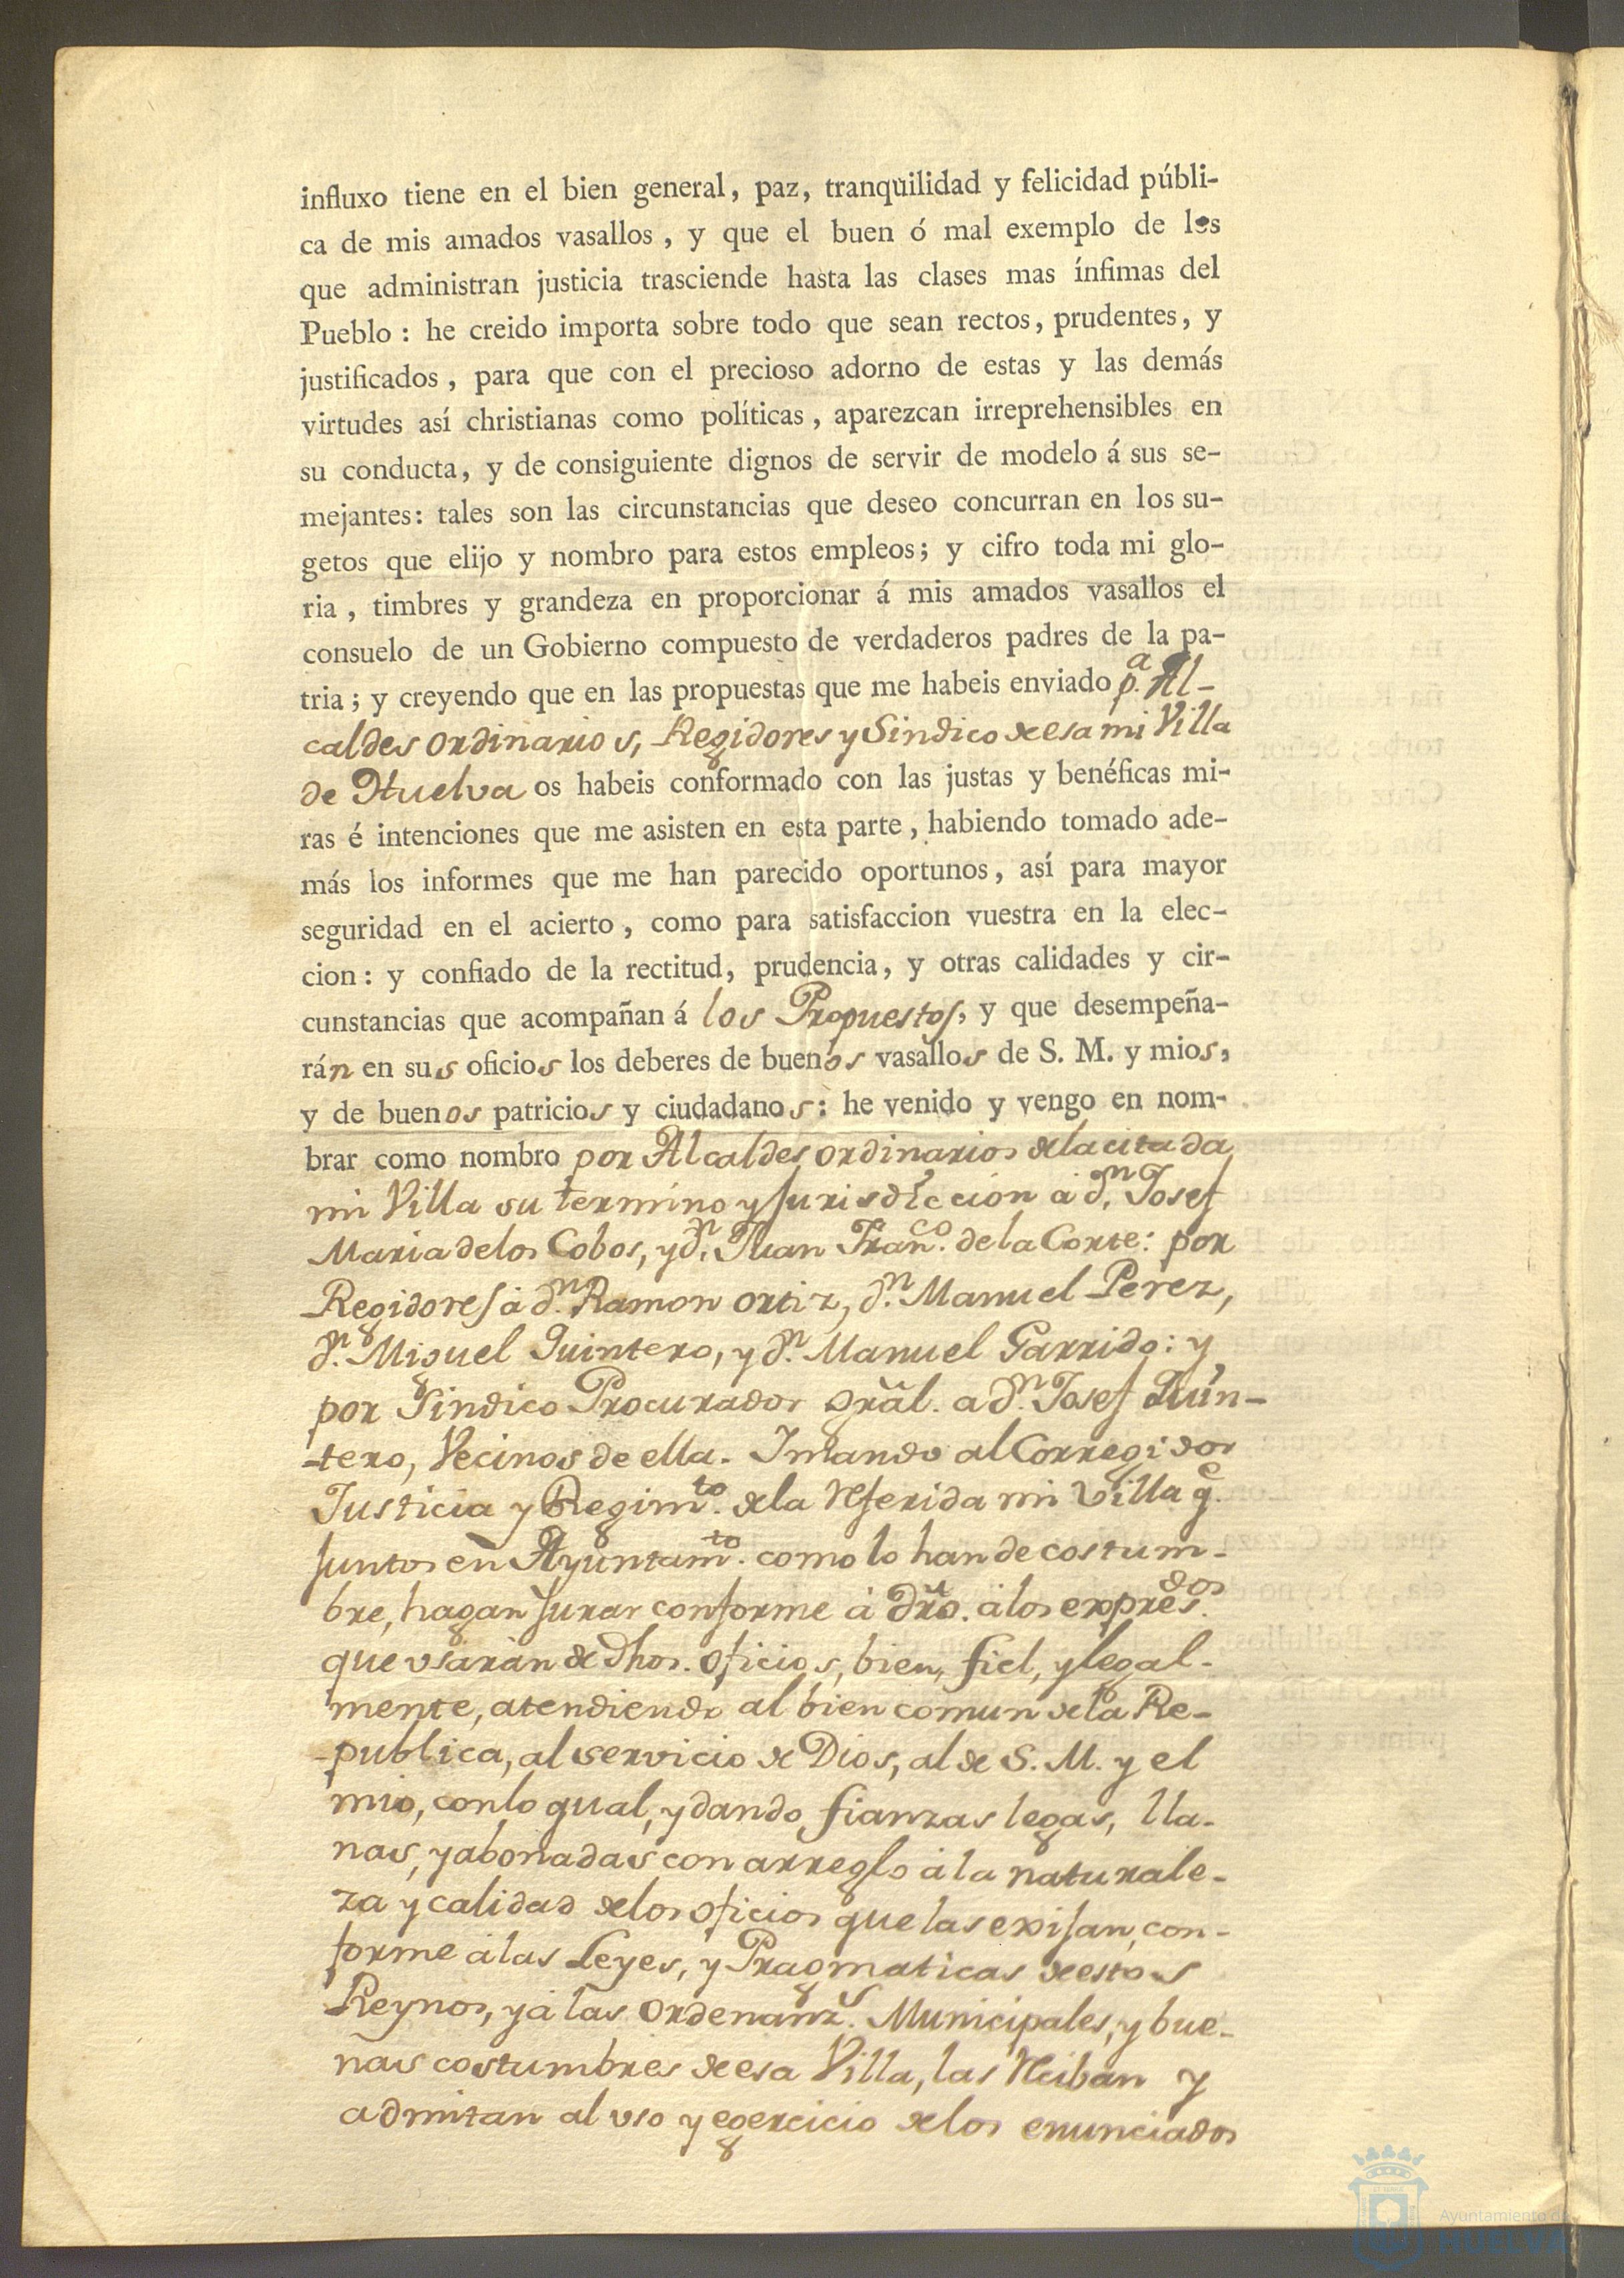 influxo tiene en el bien general, paz, tranqüilidad y felicidad públi-
ca de mis amados vasallos, y que el buen ó mal exemplo de los
que administran justicia trasciende hasta las clases mas ínfimas del
Pueblo: he creido importa sobre todo que sean rectos, prudentes, y
justificados, para que con el precioso adorno de estas y las demás
virtudes así christianas como políticas, aparezcan irreprehensibles en
su conducta, y de consiguiente dignos de servir de modelo á sus se-
mejantes: tales son las circunstancias que deseo concurran en los su-
getos que elijo y nombro para estos empleos; y cifro toda mi glo-
ria, timbres y grandeza en proporcionar á mis amados vasallos el
consuelo de un Gobierno compuesto de verdaderos padres de la pa-
tria; y creyendo que en las propuestas que me habeis enviado p.ª Al-
caldes ordinarios, Regidores y Sindico de esa mi Villa
de Huelva os habeis conformado con las justas y benéficas mi-
ras é intenciones que me asisten en esta parte, habiendo tomado ade-
más los informes que me han parecido oportunos, así para mayor
seguridad en el acierto, como para satisfaccion vuestra en la elec-
cion: y confiado de la rectitud, prudencia, y otras calidades y cir-
cunstancias que acompañan á los Propuestos, y que desempeña-
rán en sus oficios los deberes de buenos vasallos de S. M. y mios,
y de buenos patricios y ciudadanos: he venido y vengo en nom-
brar como nombro por Alcaldes ordinarios de la citada
mi Villa su termino y jurisdiccion a d.ⁿ Josef
Maria de los Cobos, y d.ⁿ Juan Fran.ᶜᵒ de la Corte: por
Regidores á d.ⁿ Ramon Ortiz, d.ⁿ Manuel Perez,
d.ⁿ Miguel Quintero, y d.ⁿ Manuel Garrido: y
por Sindico Procurador gral. a d.ⁿ Josef Quin-
-tero, Vecinos de ella. I mando al Corregidor
Justicia y Regim.ᵗᵒ de la referida mi Villa q.ᵉ
juntos en Ayuntam.ᵗᵒ como lo han de costum-
bre, hagan jurar conforme á dro. á los expres.ᵈᵒˢ
que usarán de dhos. oficios, bien, fiel, y legal-
mente, atendiendo al bien comun de la Re-
-publica, al servicio de Dios, al de S. M. y el
mio, con lo qual, y dando fianzas legas, lla-
nas, y abonadas con arreglo á la naturale-
za y calidad de los oficios que las exijan, con-
forme á las Leyes, y Pragmaticas de estos
Reynos, y á las Ordenanz.ˢ Municipales, y bue-
nas costumbres de esa Villa, las reciban y
admitan al uso y egercicio de los enunciados
Ayuntamiento de
HUELVA